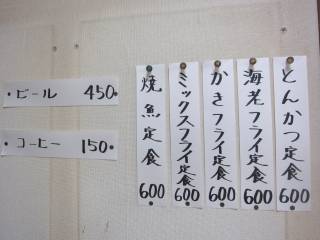 とんかつ定食 600
海老フライ定食 600
かきフライ定食 600
ミックスフライ定食 600
焼魚定食 600
ビール 450
コーヒー 150